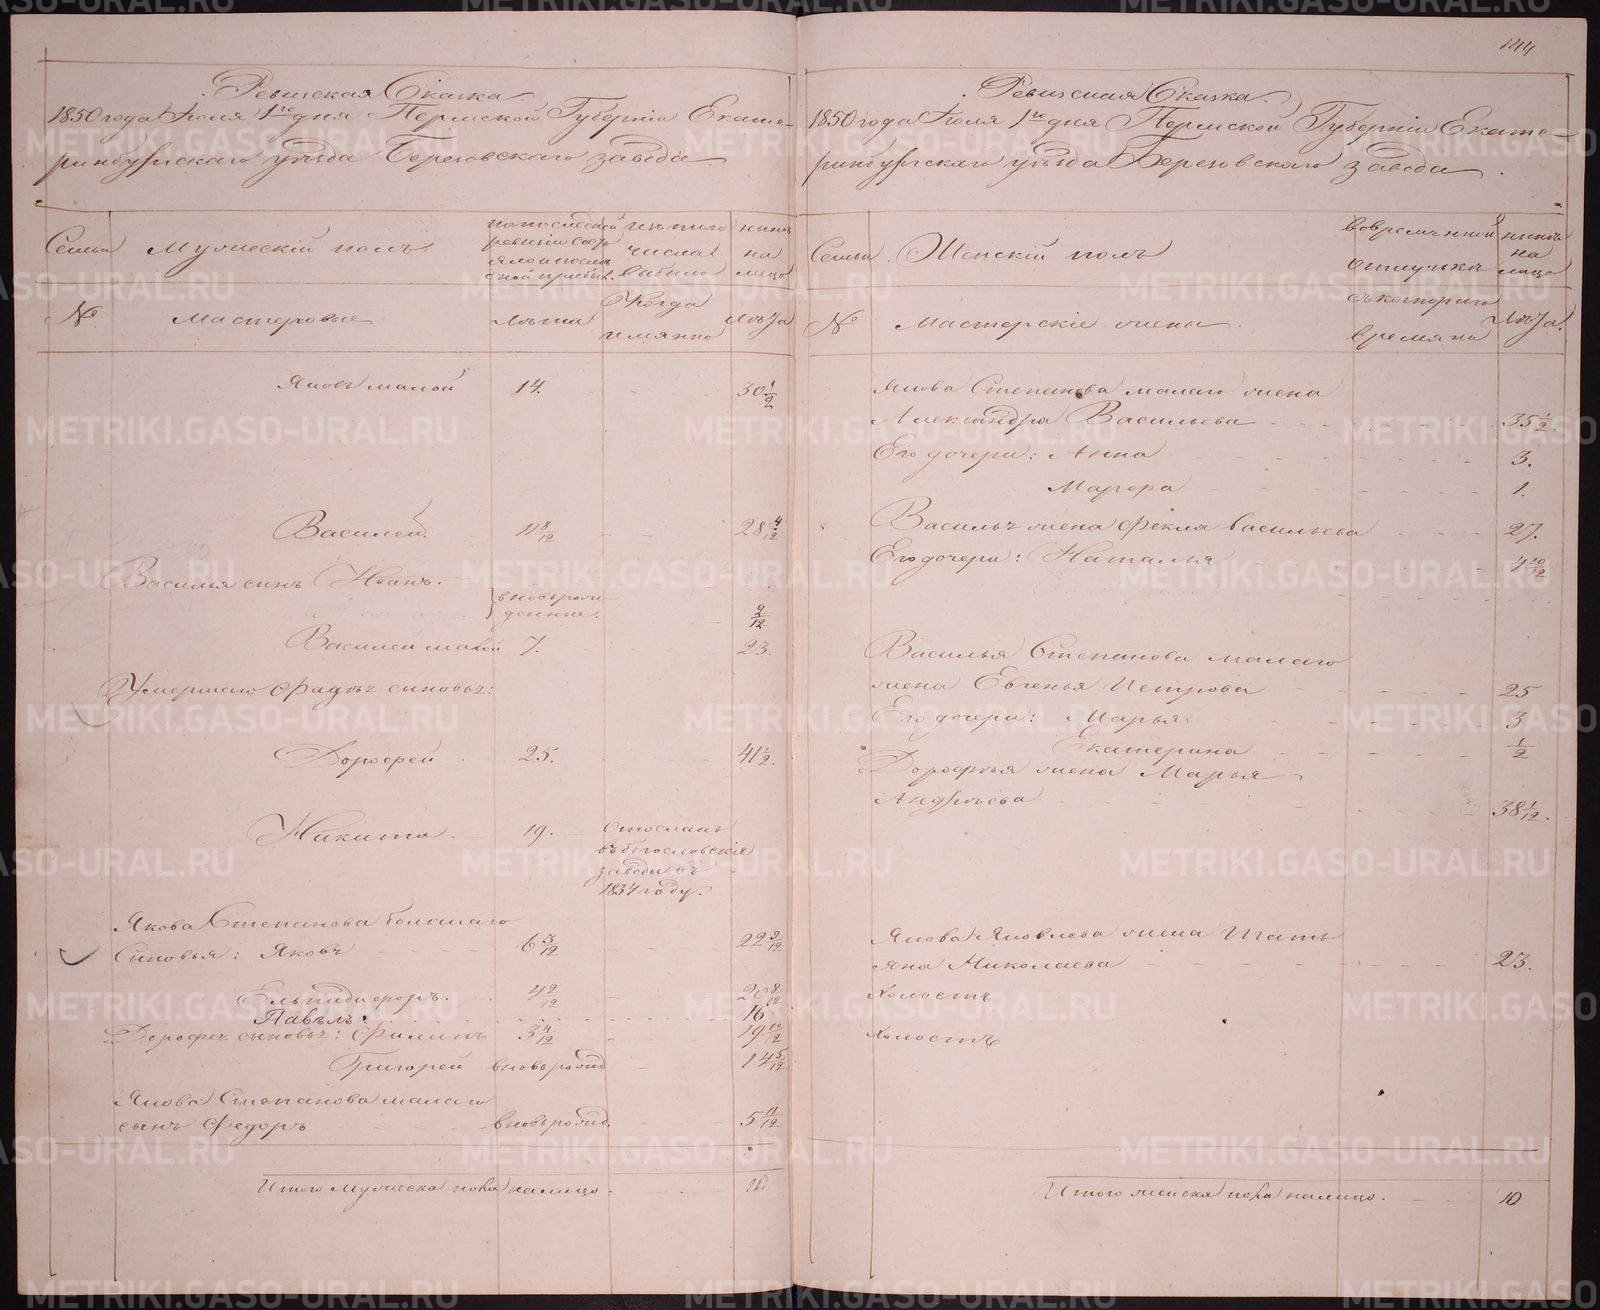 144
Ревизская Сказка.
1850 года Iюля 1го дня Пермской Губернiи Екате-
ринбургскаго уѣзда Березовскаго завода
Семьи
Мужескiй полъ
по последней
ревизiи состо
яло и после
оной прибыло.
изъ того
числа
выбыло
нынѣ
на
лицо
№
Мастеровые
Лѣта
Когда
имянно
Лѣта
Яковъ малой 14. 30 1/2
Василей. 11 8/12 28 4/12
Василья сынъ Иванъ.
вновьрож
денные. 2/12
Василей малой 7. 23.
Умершаго Фадѣя сыновья:
Дорофей 25. 41 1/2.
Никита 19. отосланъ
въ богословскiе
заводы въ
1834 году.
Якова Степанова большаго
Сыновья: Яковъ 6 3/12 22 9/12
Ельпидифоръ. 4 2/12 20 8/12
Павелъ 16
Дорофея сыновья: Филипъ 3 4/12 19 10/12
Григорей вновьрожд 14 5/12
Якова Степанова малаго
сынъ Федоръ вновьрожд. 5 11/12
Итого мужеска пола налицо. 11
Ревизская Сказка.
1850 года Iюля 1го дня Пермской Губернiи Екате-
ринбургскаго уѣзда Березовскаго завода.
Семьи
Женскiй полъ
во временной
отлучкѣ
нынѣ
на
лицо
№
Мастерскiе жены.
съ котораго
времяни
Лѣта.
Якова Степанова малаго жена
Александра Васильева 35 1/2.
Его дочери: Анна 3.
Марфа 1.
Василья жена Фекла Васильева 27.
Его дочери: Наталья 4 10/12
Василья Степанова малаго
жена Евгенья Петрова 25
Его дочери: Марья 3
Екатерина 1/2
Дорофѣя жена Марья
Андрѣева 38 1/12.
Якова Яковлева жена Тать
яна Николаева 23.
Холостъ
Холостъ
Итого женска пола налицо. 10
METRIKI.GASO-URAL.RU